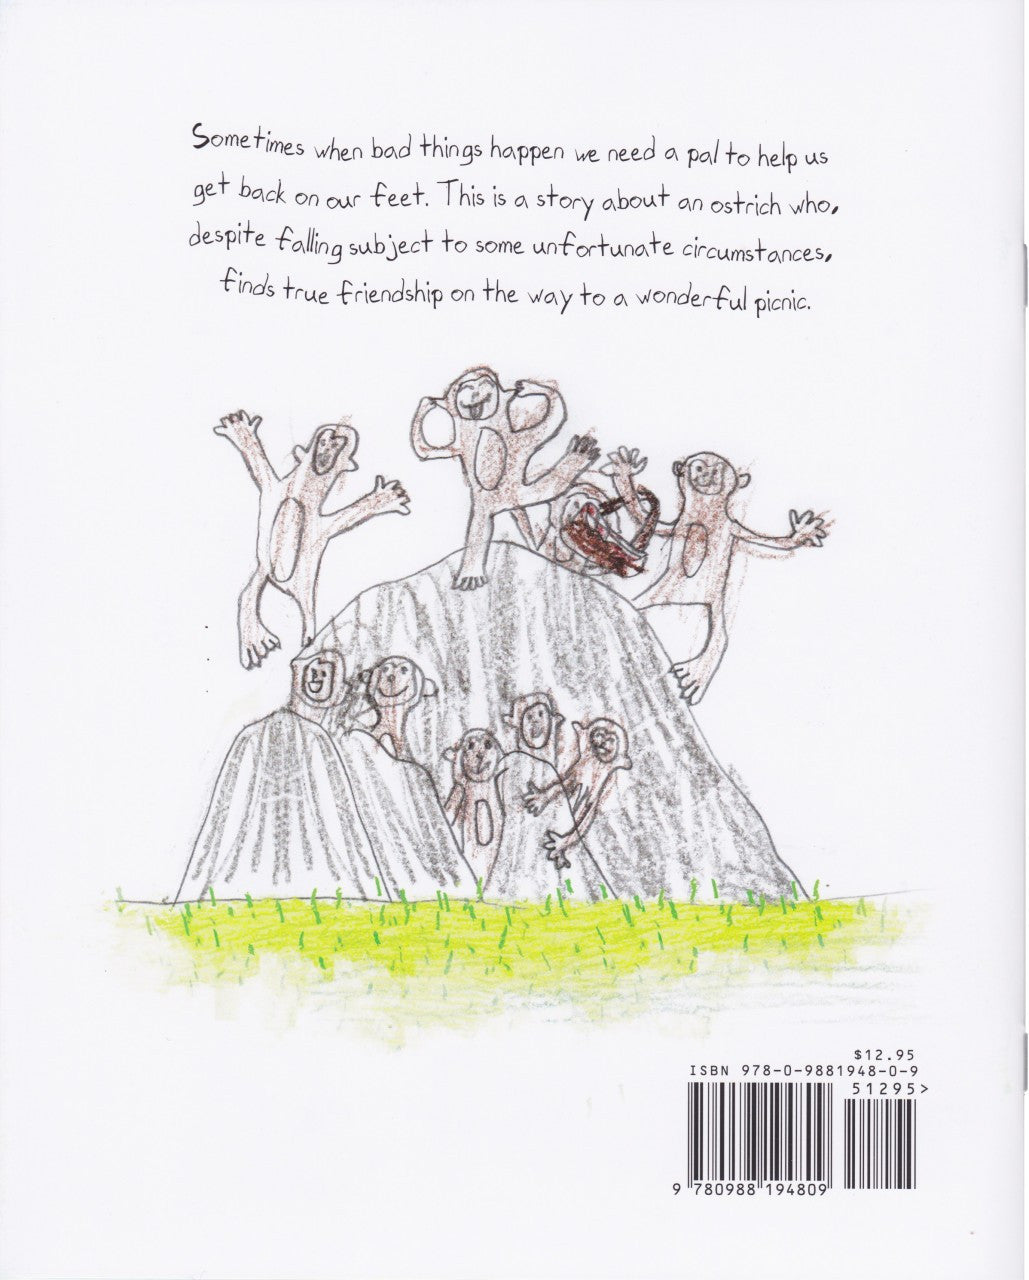 Sometimes when bad things happen we need a pal to help us
get back on our feet. This is a story about an ostrich who,
despite falling subject to some unfortunate circumstances,
finds true friendship on the way to a wonderful picnic.
$12.95
ISBN 978-0-9881948-0-9
51295>
9 780988 194809